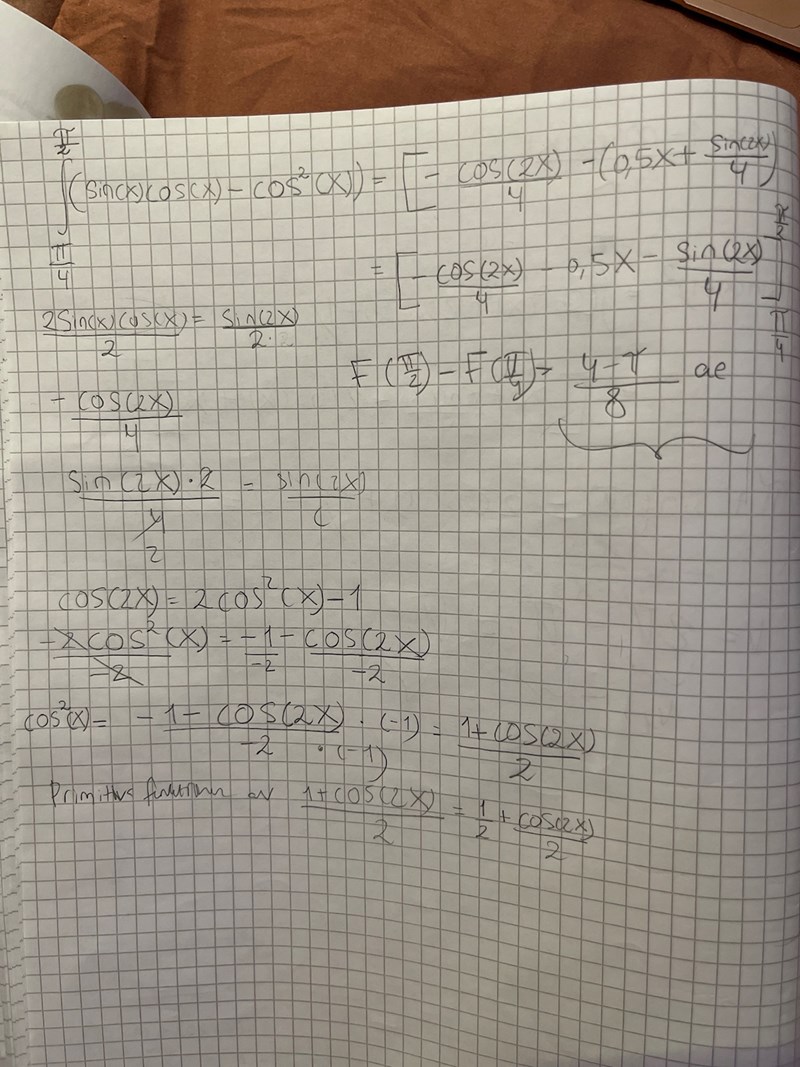 ∫_{π/4}^{π/2} (sin(x)cos(x) - cos²(x)) = [ - cos(2x)/4 - (0,5x + sin(2x)/4)
= [ - cos(2x)/4 - 0,5x - sin(2x)/4 ]_{π/4}^{π/2}
2sin(x)cos(x)/2 = sin(2x)/2
F(π/2) - F(π/4) = 4-π/8 ae
- cos(2x)/4
sin(2x)·2/4 2 = sin(2x)/
cos(2x) = 2cos²(x) - 1
-2cos²(x)/-2 = -1/-2 - cos(2x)/-2
cos²(x) = -1 - cos(2x)/-2 · (-1)/· (-1) = 1+cos(2x)/2
Primitiv funktion av 1+cos(2x)/2 = 1/2 + cos(2x)/2